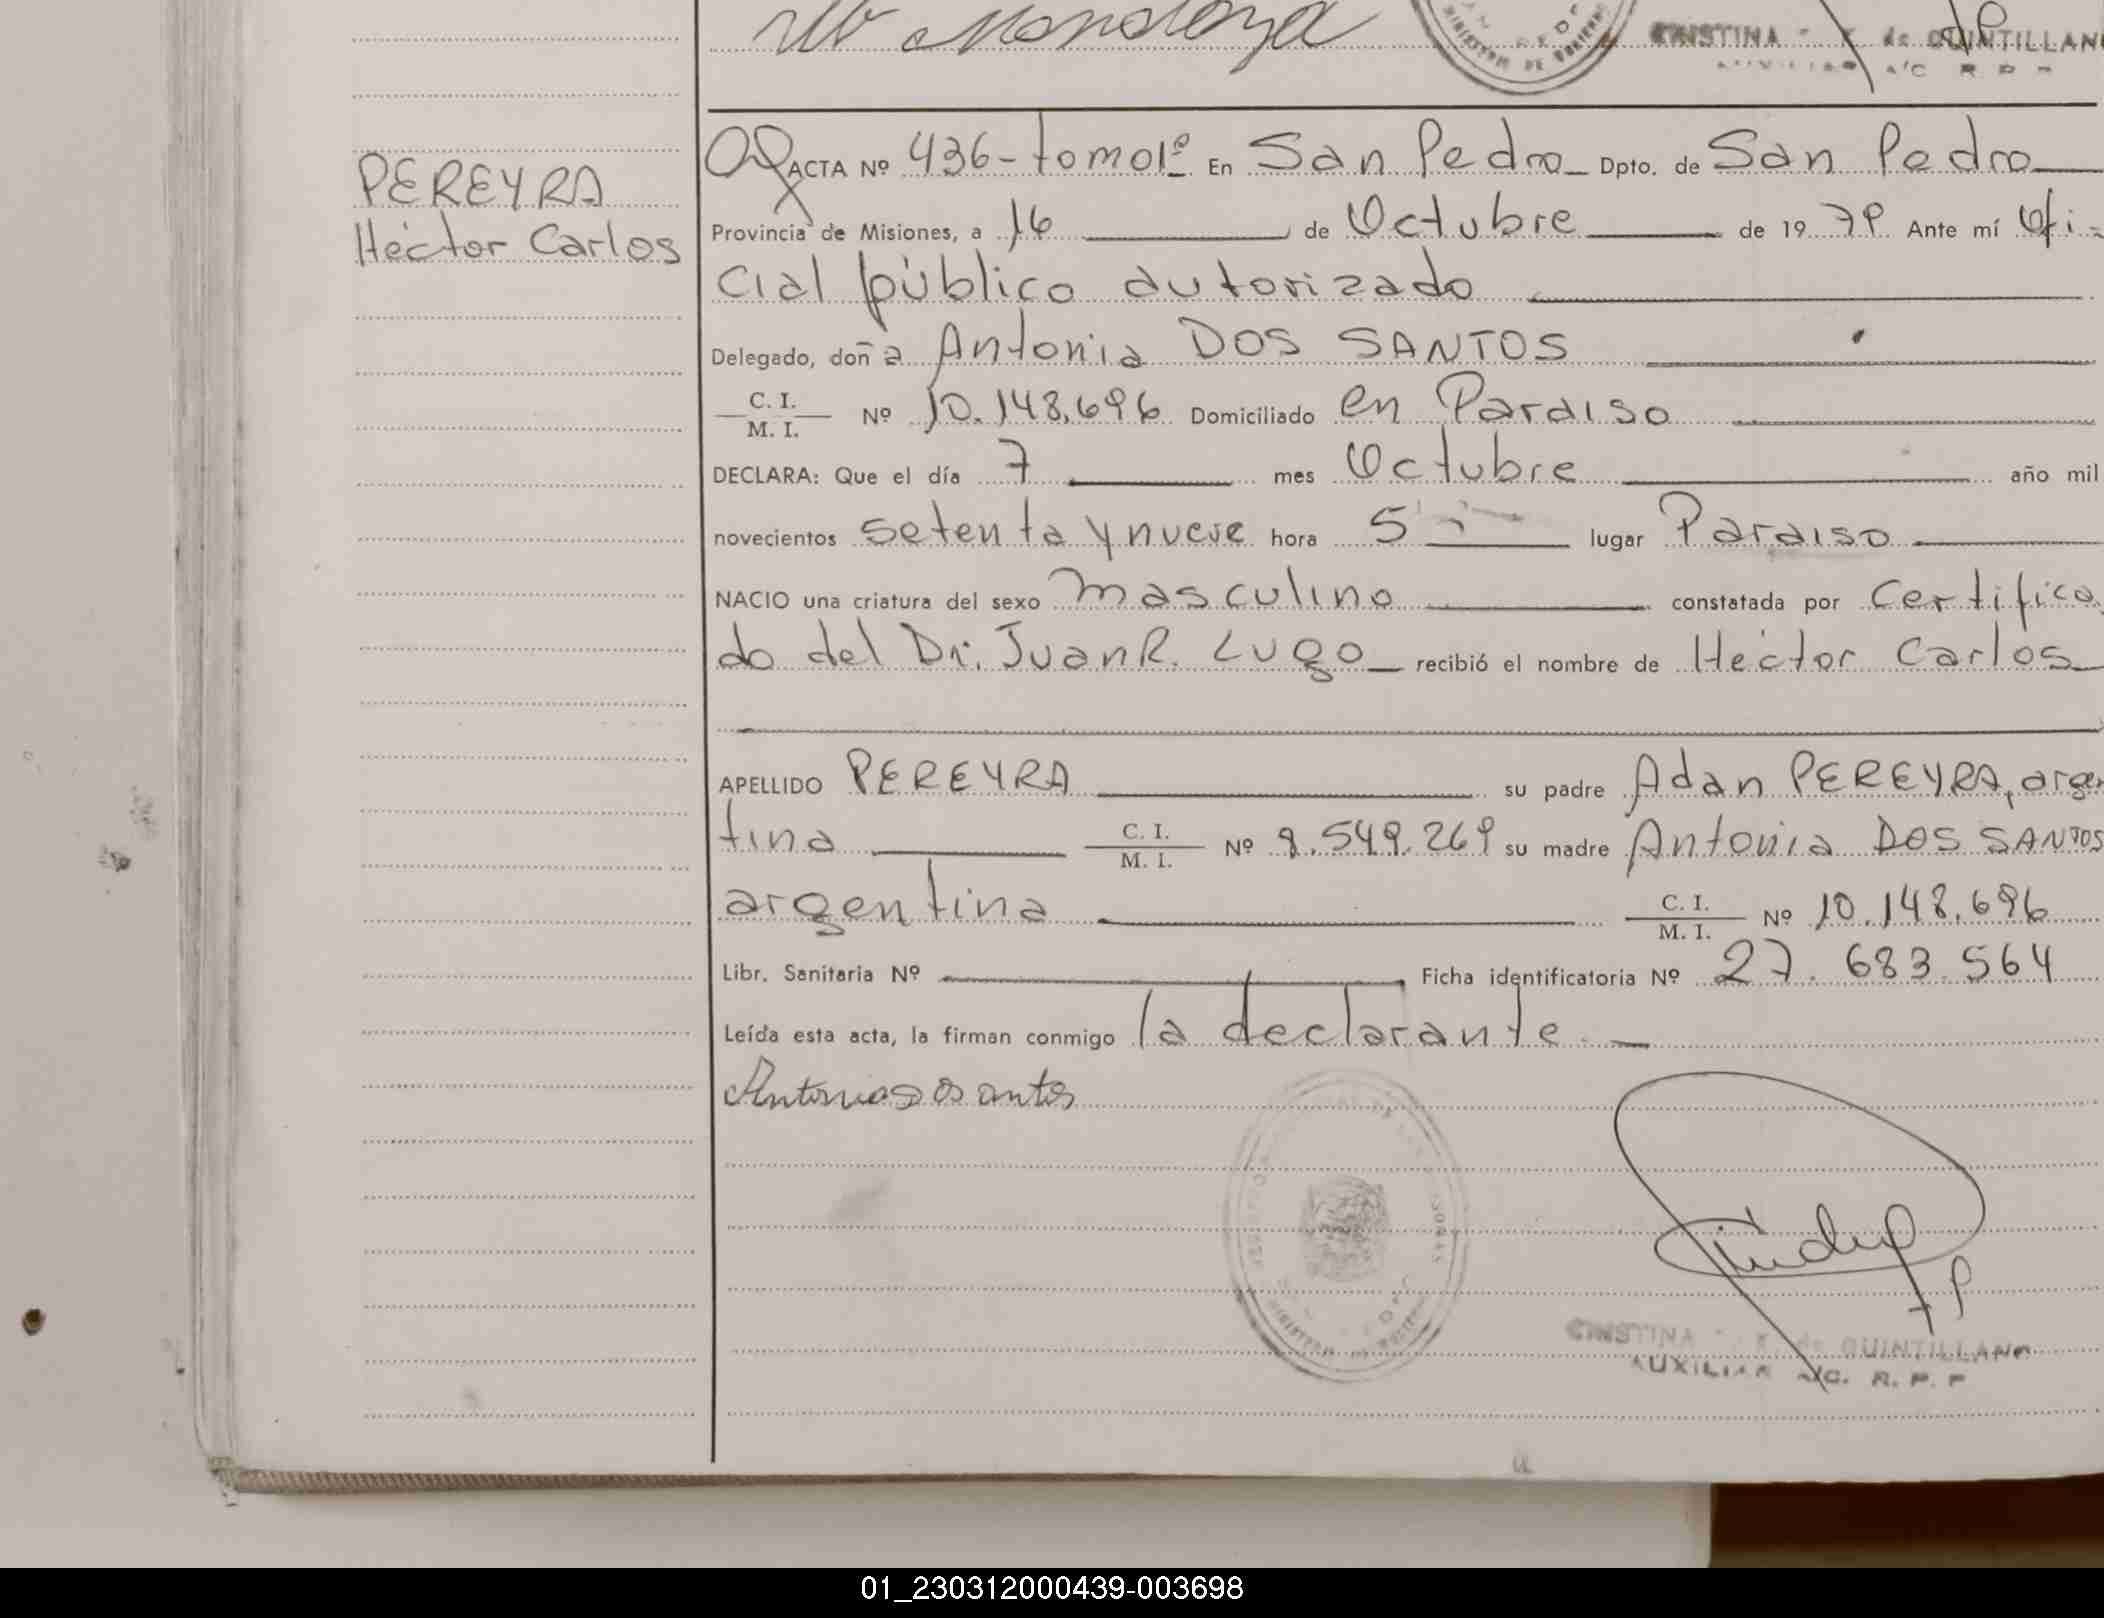 Mendoza
MINISTERIO DE GOBIERNO
CRISTINA de QUINTILLANO
AUXILIAR A/C R. P.
PEREYRA
Héctor Carlos
ACTA Nº 436-tomo1º En San Pedro Dpto. de San Pedro
Provincia de Misiones, a 16 de Octubre de 1979 Ante mí Ofi-
cial público autorizado
Delegado, doña Antonia DOS SANTOS
C. I.
M. I. Nº 10.148.696 Domiciliado en Paraiso
DECLARA: Que el día 7 mes Octubre año mil
novecientos setenta y nueve hora 5 lugar Paraiso
NACIO una criatura del sexo masculino constatada por certifica
do del Dr. Juan R. Lugo recibió el nombre de Héctor Carlos
APELLIDO PEREYRA su padre Adan PEREYRA, argen
tina C. I.
M. I. Nº 8.549.269 su madre Antonia DOS SANTOS
argentina C. I.
M. I. Nº 10.148.696
Libr. Sanitaria Nº Ficha identificatoria Nº 27.683.564
Leída esta acta, la firman conmigo la declarante.
Antonia Dos antos
CRISTINA de QUINTILLANO
AUXILIAR A/C. R. P. P
01_230312000439-003698